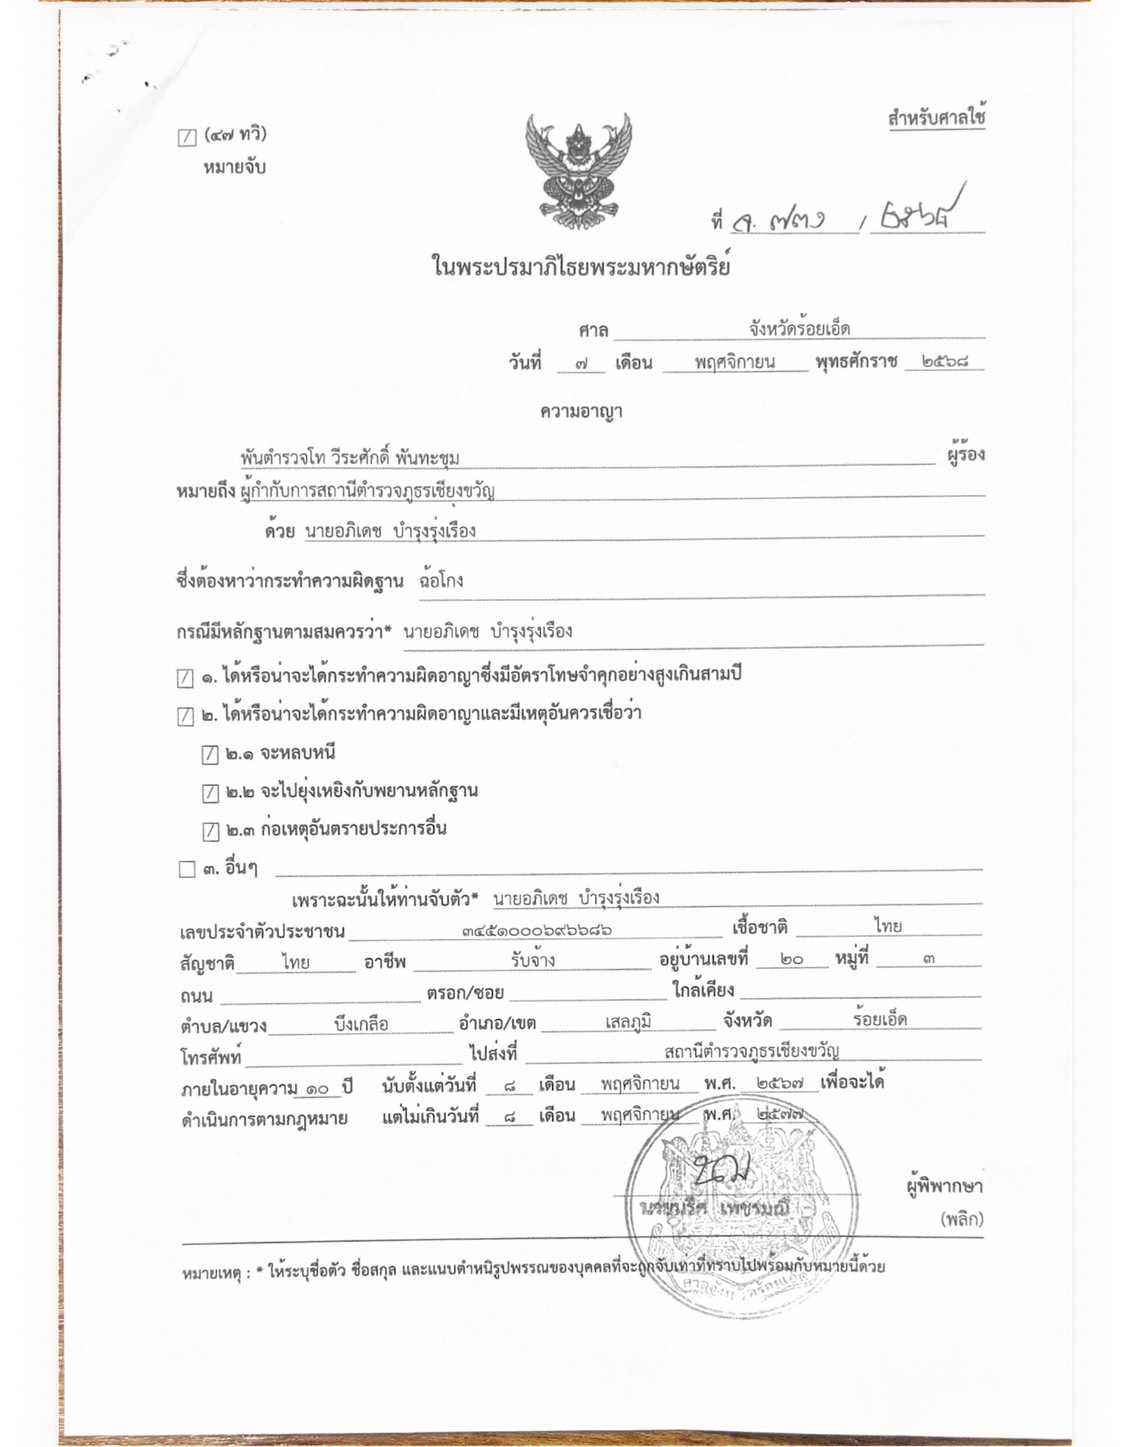 สำหรับศาลใช้
☑ (๔๗ ทวิ)
หมายจับ
ที่ จ. ๗๓๐ / ๒๕๖๘
ในพระปรมาภิไธยพระมหากษัตริย์
ศาล จังหวัดร้อยเอ็ด
วันที่ ๗ เดือน พฤศจิกายน พุทธศักราช ๒๕๖๘
ความอาญา
พันตำรวจโท วีระศักดิ์ พันทะชุม ผู้ร้อง
หมายถึง ผู้กำกับการสถานีตำรวจภูธรเชียงขวัญ
ด้วย นายอภิเดช บำรุงรุ่งเรือง
ซึ่งต้องหาว่ากระทำความผิดฐาน ฉ้อโกง
กรณีมีหลักฐานตามสมควรว่า* นายอภิเดช บำรุงรุ่งเรือง
☑ ๑. ได้หรือน่าจะได้กระทำความผิดอาญาซึ่งมีอัตราโทษจำคุกอย่างสูงเกินสามปี
☑ ๒. ได้หรือน่าจะได้กระทำความผิดอาญาและมีเหตุอันควรเชื่อว่า
☑ ๒.๑ จะหลบหนี
☑ ๒.๒ จะไปยุ่งเหยิงกับพยานหลักฐาน
☑ ๒.๓ ก่อเหตุอันตรายประการอื่น
☐ ๓. อื่นๆ
เพราะฉะนั้นให้ท่านจับตัว* นายอภิเดช บำรุงรุ่งเรือง
เลขประจำตัวประชาชน ๓๔๕๑๐๐๐๖๙๖๖๘๖ เชื้อชาติ ไทย
สัญชาติ ไทย อาชีพ รับจ้าง อยู่บ้านเลขที่ ๒๐ หมู่ที่ ๓
ถนน ตรอก/ซอย ใกล้เคียง
ตำบล/แขวง บึงเกลือ อำเภอ/เขต เสลภูมิ จังหวัด ร้อยเอ็ด
โทรศัพท์ ไปส่งที่ สถานีตำรวจภูธรเชียงขวัญ
ภายในอายุความ ๑๐ ปี นับตั้งแต่วันที่ ๘ เดือน พฤศจิกายน พ.ศ. ๒๕๖๗ เพื่อจะได้
ดำเนินการตามกฎหมาย แต่ไม่เกินวันที่ ๘ เดือน พฤศจิกายน พ.ศ. ๒๕๗๗
ผู้พิพากษา
เพชรมณี
(พลิก)
หมายเหตุ : * ให้ระบุชื่อตัว ชื่อสกุล และแนบตำหนิรูปพรรณของบุคคลที่จะถูกจับเท่าที่ทราบไปพร้อมกับหมายนี้ด้วย
ศาลจังหวัดร้อยเอ็ด